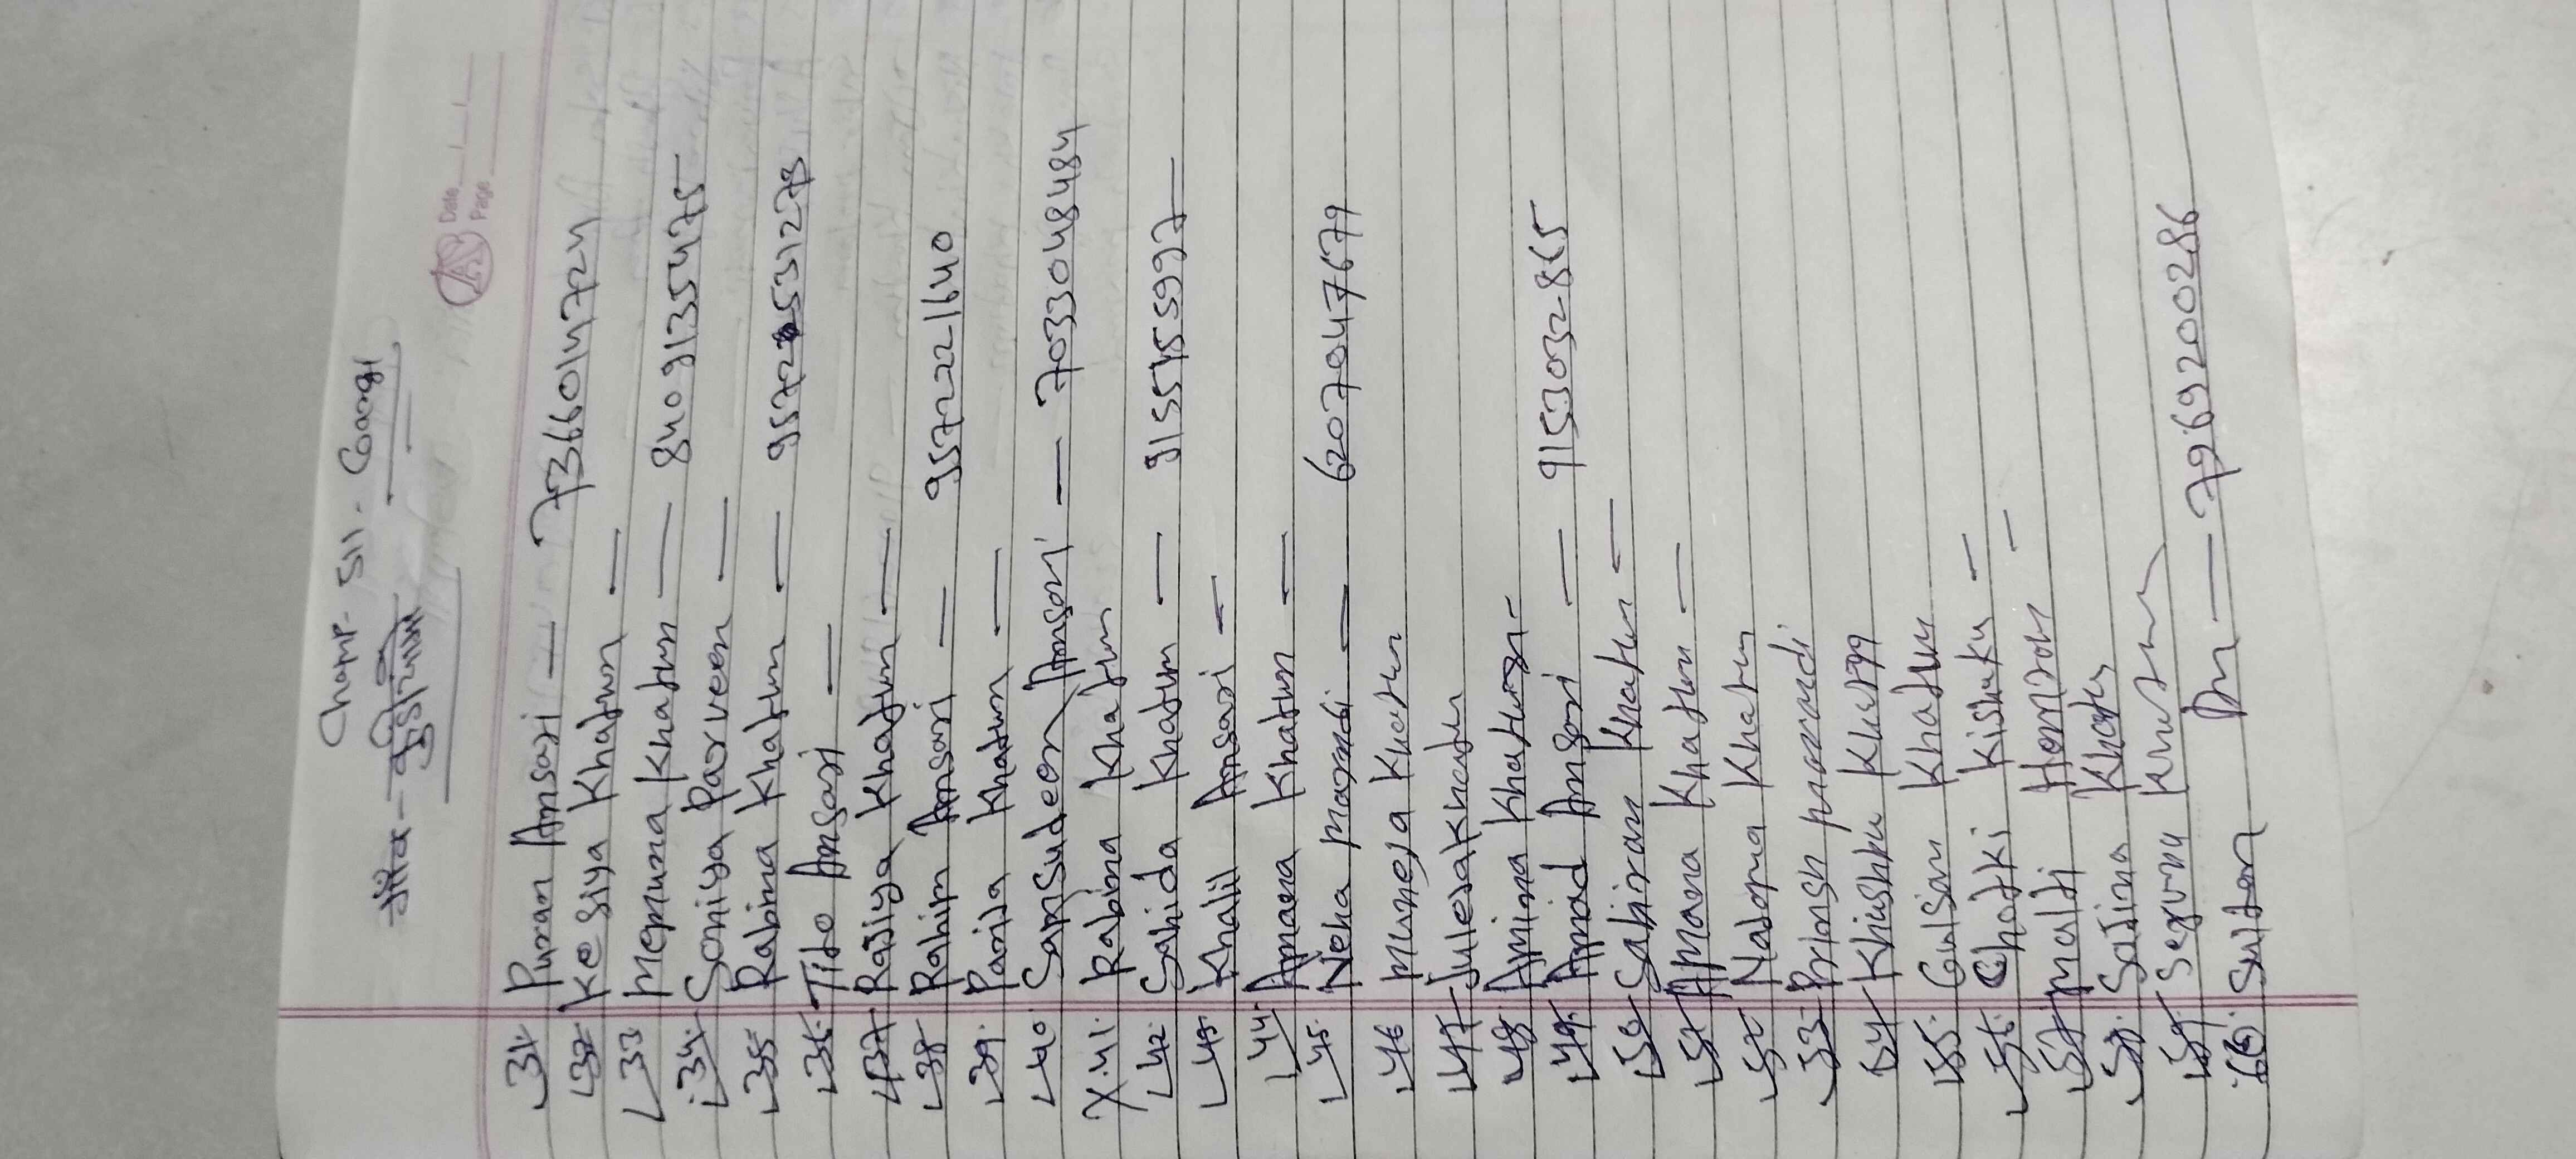 Champ- 511 - Googl
Date
Page
31. Puran Ansari — 7366014724
32 Kesiya Khatun —
33 Memuna Khatun — 8409135475
34. Soniya Parveen —
35 Rabina Khatun — 9572531278
36. Tito Ansari —
37 Rajiya Khatun —
38 Rahim Ansari — 9572221640
39. Parida Khatun —
40. Samsudeen Ansari — 7033048484
X. 41. Rabina Khatun
42. Sahida Khatun — 9155155997
43. Khalil Ansari —
44. Amana Khatun —
45. Neha Marandi — 6207047679
46 Muneja Khatun
47 Julekha Khatun
48. Amina Khatun -
49. Amad Ansari — 9153032865
50 Sabiran Khatun —
51 Amana Khatun —
52 Nadama Khatun
53 Prinsh marandi
54 Khushku
55. Gulsan Khatun
56. Chhotki Kishku —
57. Malti Hemrom —
58. Sajina Khatun
59 Khatun
60. Sultan — 7969200286